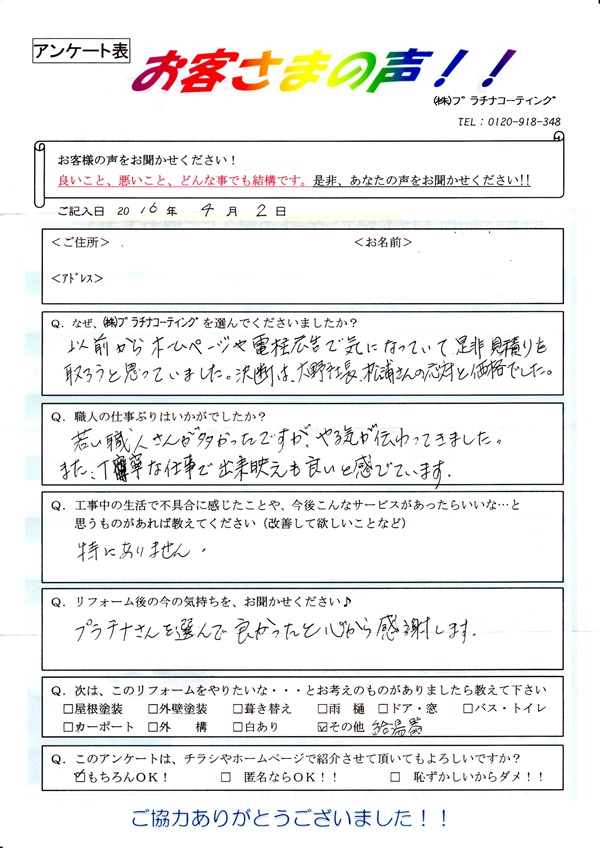 アンケート表
お客さまの声！！
㈱プラチナコーティング
TEL：0120-918-348
お客様の声をお聞かせください！
良いこと、悪いこと、どんな事でも結構です。是非、あなたの声をお聞かせください!!
ご記入日 2016年 4月 2日
＜ご住所＞ ＜お名前＞
＜アドレス＞
Q．なぜ、㈱プラチナコーティングを選んでくださいましたか？
以前からホームページや電柱広告で気になっていて是非見積りを
取ろうと思っていました。決断は、大野社長、松浦さんの応対と価格でした。
Q．職人の仕事ぶりはいかがでしたか？
若い職人さんが多かったですが、やる気が伝わってきました。
また、丁寧な仕事で出来映えも良いと感じています。
Q．工事中の生活で不具合に感じたことや、今後こんなサービスがあったらいいな…と
思うものがあれば教えてください（改善して欲しいことなど）
特にありません。
Q．リフォーム後の今の気持ちを、お聞かせください♪
プラチナさんを選んで良かったと心から感謝します。
Q．次は、このリフォームをやりたいな・・・とお考えのものがありましたら教えて下さい
□屋根塗装 □外壁塗装 □葺き替え □雨 樋 □ドア・窓 □バス・トイレ
□カーポート □外 構 □白あり ☑その他 給湯器
Q．このアンケートは、チラシやホームページで紹介させて頂いてもよろしいですか？
☑もちろんOK！ □ 匿名ならOK！！ □ 恥ずかしいからダメ！！
ご協力ありがとうございました！！